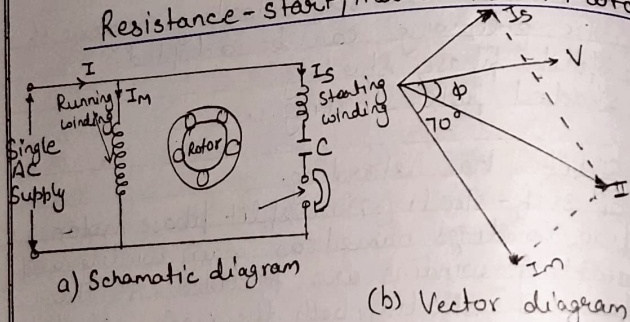 Resistance-start,
I
Running
winding
IM
Single
AC
Supply
Rotor
Is
Steating
winding
C
a) Schamatic diagram
Is
V
φ
70°
I
Im
(b) Vector diagram